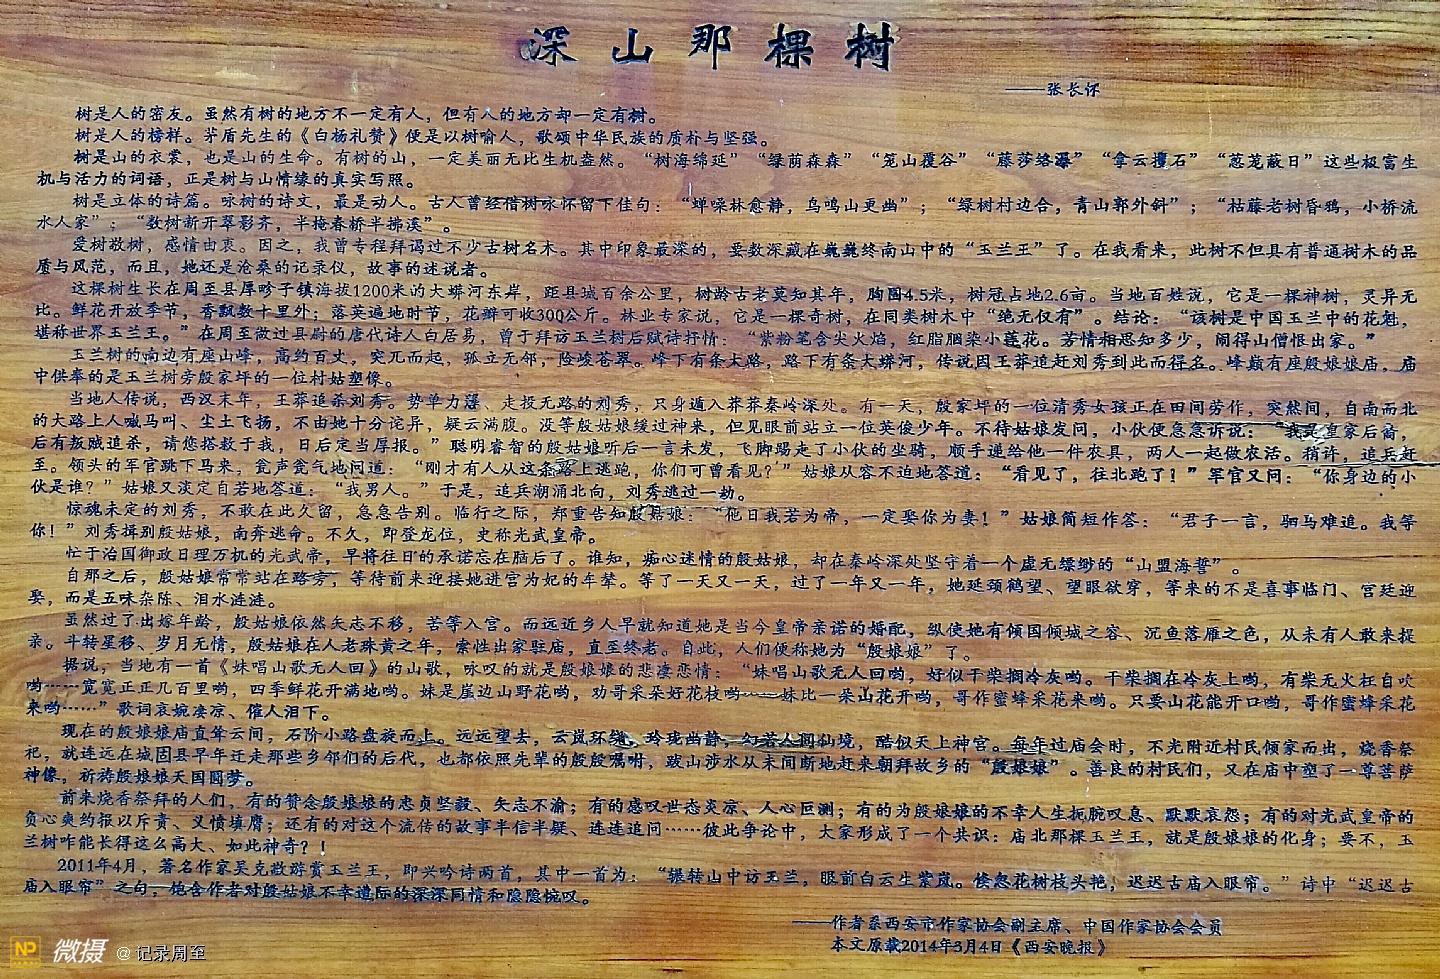 深山那棵树
——张长怀
树是人的密友。虽然有树的地方不一定有人，但有人的地方却一定有树。
树是人的榜样。茅盾先生的《白杨礼赞》便是以树喻人，歌颂中华民族的质朴与坚强。
树是山的衣裳，也是山的生命。有树的山，一定美丽无比生机盎然。“树海绵延”“绿荫森森”“笼山覆谷”“藤莎络瀑”“拿云攫石”“葱茏蔽日”这些极富生
机与活力的词语，正是树与山情缘的真实写照。
树是立体的诗篇。咏树的诗文，最是动人。古人曾经借树咏怀留下佳句：“蝉噪林愈静，鸟鸣山更幽”；“绿树村边合，青山郭外斜”；“枯藤老树昏鸦，小桥流
水人家”；“数树新开翠影齐，半掩春桥半拂溪”。
爱树敬树，感情由衷。因之，我曾专程拜谒过不少古树名木。其中印象最深的，要数深藏在巍巍终南山中的“玉兰王”了。在我看来，此树不但具有普通树木的品
质与风范，而且，她还是沧桑的记录仪，故事的述说者。
这棵树生长在周至县厚畛子镇海拔1200米的大蟒河东岸，距县城百余公里，树龄古老莫知其年，胸围4.5米，树冠占地2.6亩。当地百姓说，它是一棵神树，灵异无
比。鲜花开放季节，香飘数十里外；落英遍地时节，花瓣可收300公斤。林业专家说，它是一棵奇树，在同类树木中“绝无仅有”。结论：“该树是中国玉兰中的花魁，
堪称世界玉兰王。”在周至做过县尉的唐代诗人白居易，曾于拜访玉兰树后赋诗抒情：“紫粉笔含尖火焰，红脂胭染小莲花。芳情相思知多少，闹得山僧恨出家。”
玉兰树的南边有座山峰，高约百丈，突兀而起，孤立无邻，险峻苍翠。峰下有条大路，路下有条大蟒河，传说因王莽追赶刘秀到此而得名。峰巅有座殷娘娘庙，庙
中供奉的是玉兰树旁殷家坪的一位村姑塑像。
当地人传说，西汉末年，王莽追杀刘秀。势单力薄、走投无路的刘秀，只身遁入莽莽秦岭深处。有一天，殷家坪的一位清秀女孩正在田间劳作，突然间，自南而北
的大路上人喊马叫、尘土飞扬，不由她十分诧异，疑云满腹。没等殷姑娘缓过神来，但见眼前站立一位英俊少年。不待姑娘发问，小伙便急急诉说：“我是皇家后裔，
后有叛贼追杀，请您搭救于我，日后定当厚报。”聪明睿智的殷姑娘听后一言未发，飞脚踢走了小伙的坐骑，顺手递给他一件农具，两人一起做农活。稍许，追兵赶
至。领头的军官跳下马来，瓮声瓮气地问道：“刚才有人从这条路上逃跑，你们可曾看见？”姑娘从容不迫地答道：“看见了，往北跑了！”军官又问：“你身边的小
伙是谁？”姑娘又淡定自若地答道：“我男人。”于是，追兵潮涌北向，刘秀逃过一劫。
惊魂未定的刘秀，不敢在此久留，急急告别。临行之际，郑重告知殷姑娘：“他日我若为帝，一定娶你为妻！”姑娘简短作答：“君子一言，驷马难追。我等
你！”刘秀揖别殷姑娘，南奔逃命。不久，即登龙位，史称光武皇帝。
忙于治国御政日理万机的光武帝，早将往日的承诺忘在脑后了。谁知，痴心迷情的殷姑娘，却在秦岭深处坚守着一个虚无缥缈的“山盟海誓”。
自那之后，殷姑娘常常站在路旁，等待前来迎接她进宫为妃的车辇。等了一天又一天，过了一年又一年，她延颈鹤望、望眼欲穿，等来的不是喜事临门、宫廷迎
娶，而是五味杂陈、泪水涟涟。
虽然过了出嫁年龄，殷姑娘依然矢志不移，苦等入宫。而远近乡人早就知道她是当今皇帝亲诺的婚配，纵使她有倾国倾城之容、沉鱼落雁之色，从未有人敢来提
亲。斗转星移、岁月无情，殷姑娘在人老珠黄之年，索性出家驻庙，直至终老。自此，人们便称她为“殷娘娘”了。
据说，当地有一首《妹唱山歌无人回》的山歌，咏叹的就是殷娘娘的悲凄恋情：“妹唱山歌无人回哟，好似干柴搁冷灰哟。干柴搁在冷灰上哟，有柴无火枉自吹
哟……宽宽正正几百里哟，四季鲜花开满地哟。妹是崖边山野花哟，劝哥采朵好花枝哟……妹比一朵山花开哟，哥作蜜蜂采花来哟。只要山花能开口哟，哥作蜜蜂采花
来哟……”歌词哀婉凄凉、催人泪下。
现在的殷娘娘庙直耸云间，石阶小路盘旋而上。远远望去，云岚环绕，玲珑幽静，幻若人间仙境，酷似天上神宫。每年过庙会时，不光附近村民倾家而出，烧香祭
祀，就连远在城固县早年迁走那些乡邻们的后代，也都依照先辈的殷殷嘱咐，跋山涉水从未间断地赶来朝拜故乡的“殷娘娘”。善良的村民们，又在庙中塑了一尊菩萨
神像，祈祷殷娘娘天国圆梦。
前来烧香祭拜的人们，有的赞念殷娘娘的忠贞坚毅、矢志不渝；有的感叹世态炎凉、人心叵测；有的为殷娘娘的不幸人生扼腕叹息、默默哀怨；有的对光武皇帝的
负心爽约报以斥责、义愤填膺；还有的对这个流传的故事半信半疑、连连追问……彼此争论中，大家形成了一个共识：庙北那棵玉兰王，就是殷娘娘的化身；要不，玉
兰树咋能长得这么高大、如此神奇？！
2011年4月，著名作家吴克敬游赏玉兰王，即兴吟诗两首，其中一首为：“辗转山中访玉兰，眼前白云生紫岚。倏忽花树枝头艳，迟迟古庙入眼帘。”诗中“迟迟古
庙入眼帘”之句，饱含作者对殷姑娘不幸遭际的深深同情和隐隐惋叹。
——作者系西安市作家协会副主席、中国作家协会会员
本文原载2014年3月4日《西安晚报》
NP 微摄 @记录周至